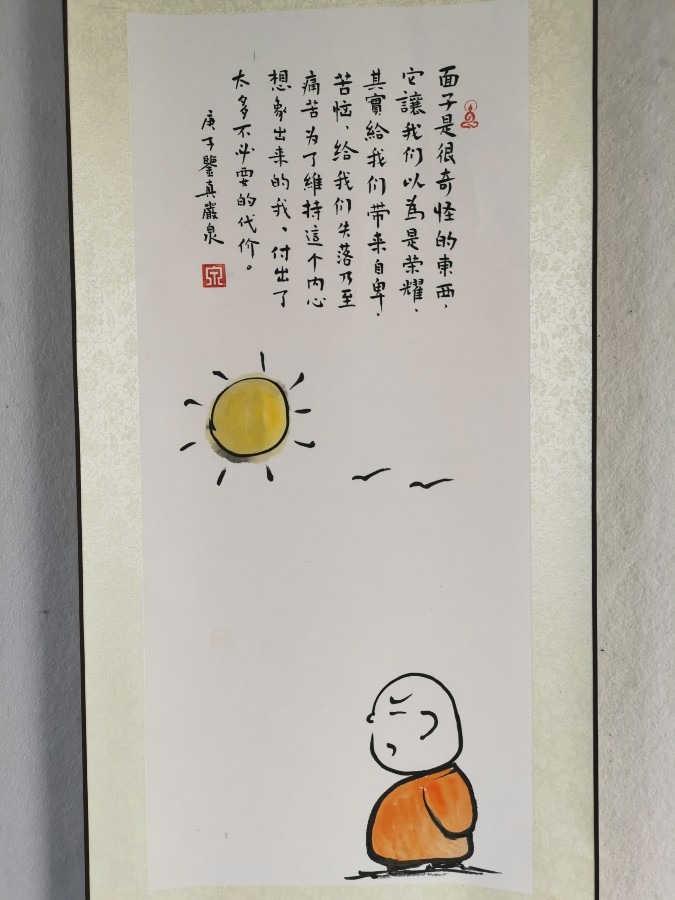 面子是很奇怪的東西，
它讓我们以為是荣耀、
其實給我们带来自卑、
苦恼、給我们失落乃至
痛苦为了維持這个内心
想象出来的我、付出了
太多不必要的代价。
庚子鑒真嚴泉